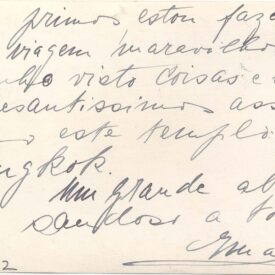 primos estou faze
viagem maravilho
nho visto coisas e
ressantissimos ass
mo este templo
ngkok.
Um grande ab
saudoso a to
2